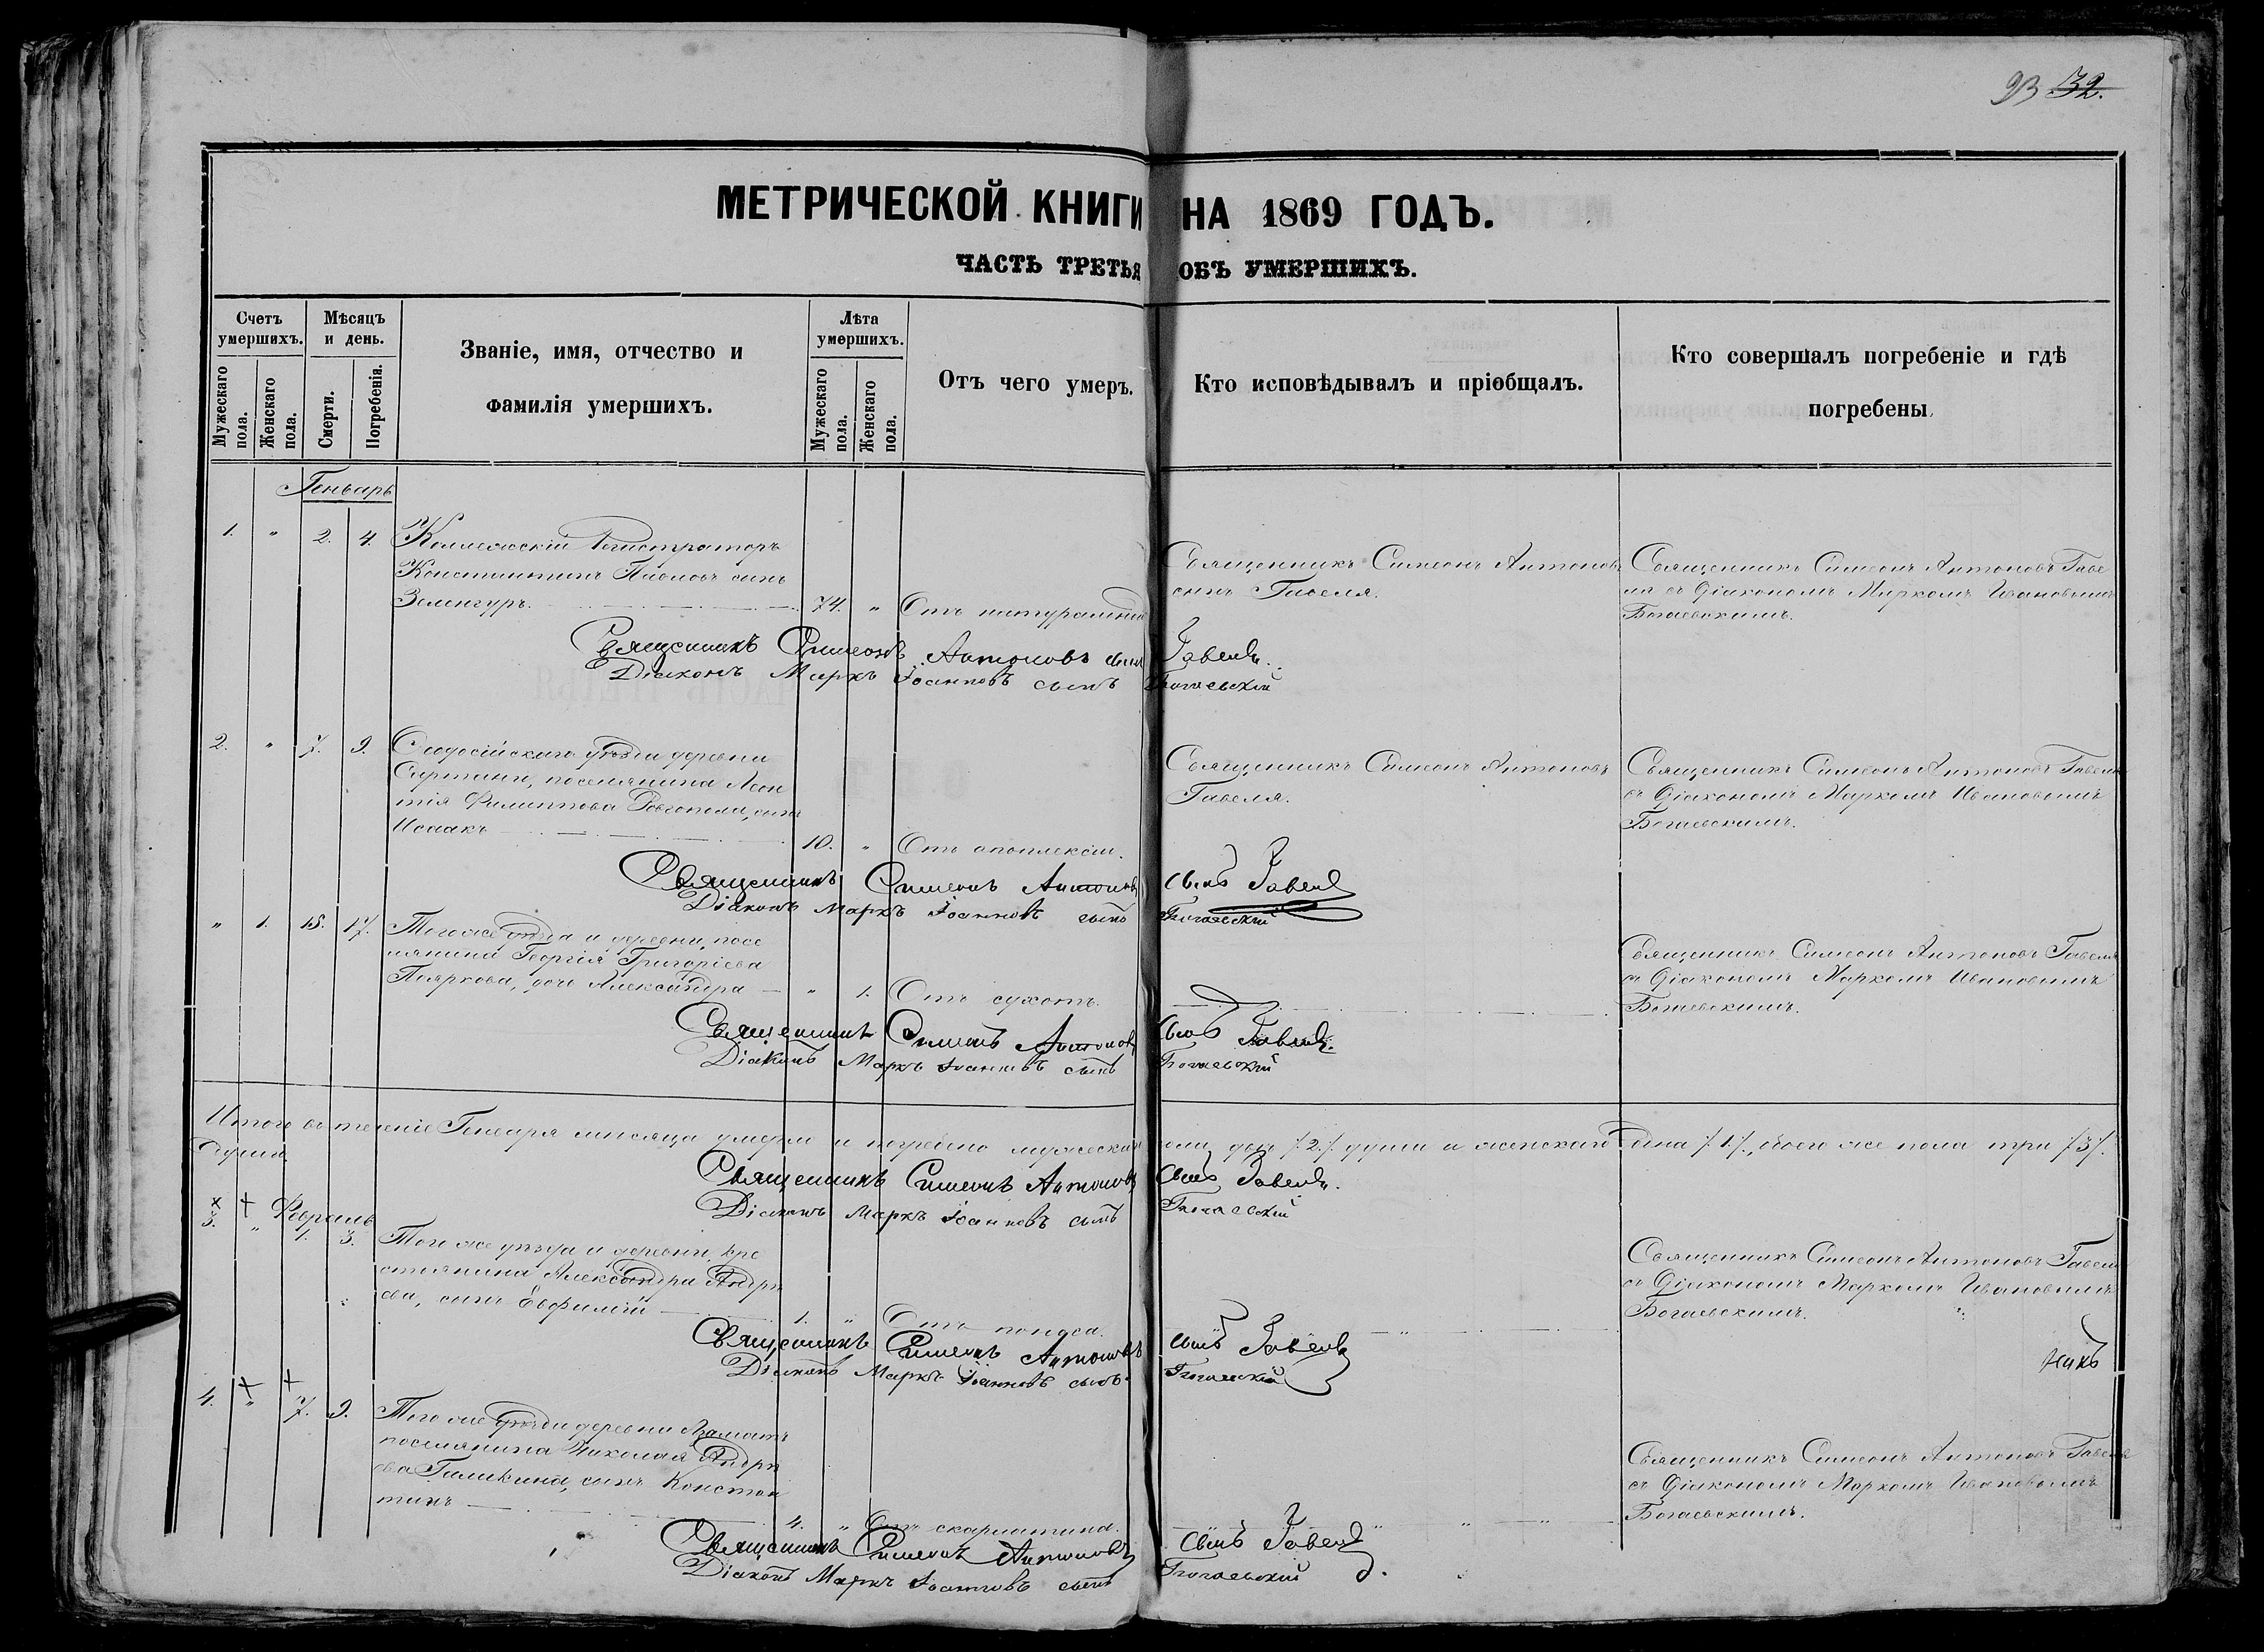 93 32.
МЕТРИЧЕСКОЙ КНИГИ НА 1869 ГОДЪ.
ЧАСТЬ ТРЕТЬЯ ОБЪ УМЕРШИХЪ.
Счетъ умершихъ.
Мужескаго пола.
Женскаго пола.
Мѣсяцъ и день.
Смерти.
Погребенія.
Званіе, имя, отчество и
фамилія умершихъ.
Лѣта умершихъ.
Мужескаго пола.
Женскаго пола.
Отъ чего умеръ.
Кто исповѣдывалъ и пріобщалъ.
Кто совершалъ погребеніе и гдѣ
погребены.
Генварь
1. " 2. 4. Коллежскій Регистраторъ
Константинъ Павловъ сынъ
74. " Отъ натуральной
Священникъ Симеонъ Антоновъ
сынъ Гавеля.
Священникъ Симеонъ Антоновъ Гаве
ля съ Діакономъ Маркомъ Ивановымъ
Богаевскимъ.
Священникъ Симеонъ Антоновъ сынъ Гавеля.
Діаконъ Маркъ Іоанновъ сынъ Богаевскій
2. " 7. 9. Ѳеодосійскаго уѣзда деревни
поселянина Леон
тія Филиппова сынъ
Исаакъ
10. " Отъ апоплексіи.
Священникъ Симеонъ Антоновъ
Гавеля.
Священникъ Симеонъ Антоновъ Гавеля
съ Діакономъ Маркомъ Ивановымъ
Богаевскимъ.
Священникъ Симеонъ Антоновъ сынъ Гавеля
Діаконъ Маркъ Іоанновъ сынъ Богаевскій
" 1. 15. 17. Того же уѣзда и деревни, посе
лянина Георгія Григоріева
Пояркова, дочь Александра
" 1. Отъ сухотъ.
Священникъ Симеонъ Антоновъ Гавеля
съ Діакономъ Маркомъ Ивановымъ
Богаевскимъ.
Священникъ Симеонъ Антоновъ сынъ Гавеля.
Діаконъ Маркъ Іоанновъ сынъ Богаевскій
Итого въ теченіе Генваря мѣсяца умерли и погребено мужескаго пола двѣ /2/ души и женскаго одна /1/, обоего же пола три /3/.
души.
Священникъ Симеонъ Антоновъ сынъ Гавеля.
Діаконъ Маркъ Іоанновъ сынъ Богаевскій
Февраль
3. " 1. 3. Того же уѣзда и деревни, кре
стьянина Александра Андре
ева, сынъ Евфимій
1. " Отъ поноса.
Священникъ Симеонъ Антоновъ Гавеля
съ Діакономъ Маркомъ Ивановымъ
Богаевскимъ.
Священникъ Симеонъ Антоновъ сынъ Гавеля
Діаконъ Маркъ Іоанновъ сынъ Богаевскій
4. " 7. 9. Того же уѣзда деревни Азаматъ
поселянина Николая Андре
ева Галикина, сынъ Констан
тинъ
4. " Отъ скарлатина.
Священникъ Симеонъ Антоновъ Гавеля
съ Діакономъ Маркомъ Ивановымъ
Богаевскимъ.
Священникъ Симеонъ Антоновъ сынъ Гавеля
Діаконъ Маркъ Іоанновъ сынъ Богаевскій